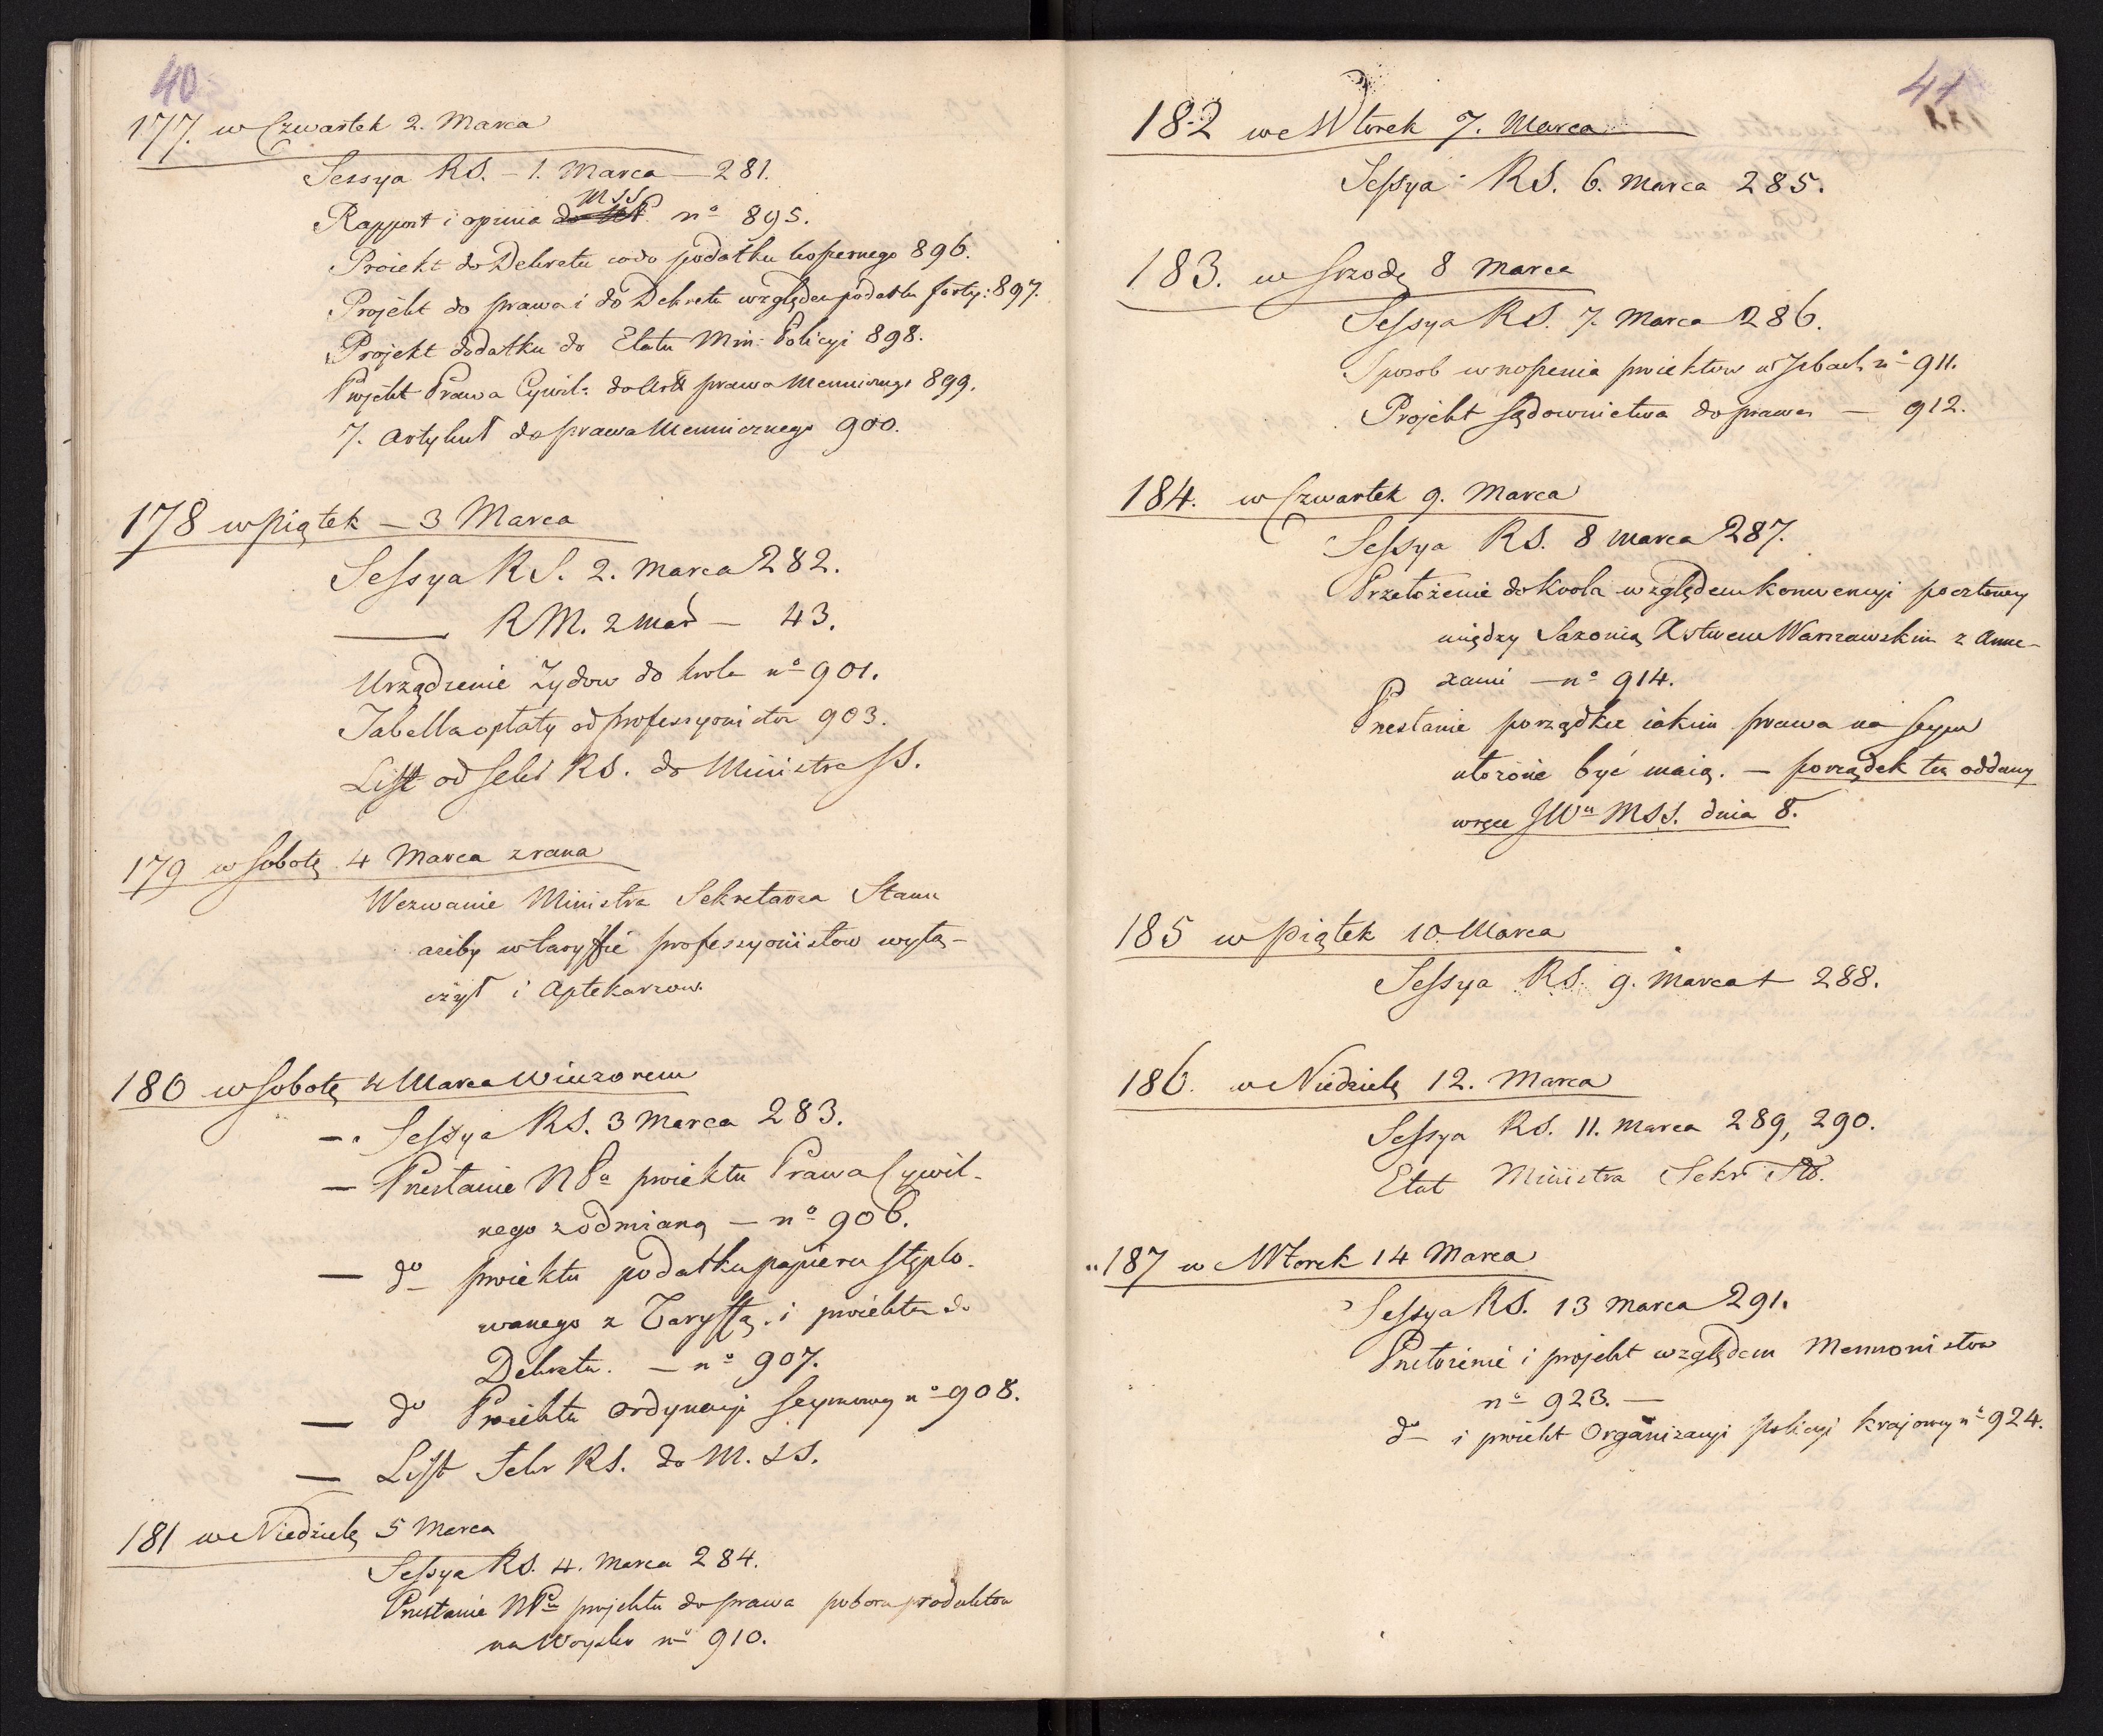 40
177. w Czwartek 2. Marca
Sessya RS. – 1. Marca – 281.
MSS
Rapport i opinia nº 895.
Proiekt do Dekretu codo podatku kospernego 896.
Projekt do prawa i do Dekretu względem podatku 897.
Projekt dodatku do Etatu Min: Policyi 898.
Projekt Prawa Cywil: do prawa Menniczngo 899.
7. Artykuł do prawa Mennicznego 900.
178 w Piątek – 3 Marca
Sessya RS. 2. Marca 282.
—— RM. 2 Mar – 43.
Urządzenie Zydow do krola nº 901.
Tabella opłaty od professyonistow 903.
List od Sekr RS. do Ministra SS.
179 w Sobotę 4 Marca zrana
Wezwanie Ministra Sekretarza Stanu
ażeby w taryffie professyonistow wyłą-
czył i Aptekarzow.
180 w Sobotę 4 Marca Wieczorem
– Sessya RS. 3 Marca 283.
– Przesłanie NPu proiektu Prawa Cywil-
nego z odmianą – nº 906.
– dº proiektu podatku papieru stęplo-
wanego z Taryffą i proiektu do
Dekretu. – nº 907.
– dº Proiektu ordynacyi Seymowey nº 908.
– List Sekr RS. do M. SS.
181 w Niedzielę 5 Marca
Sessya RS. 4. Marca 284.
Przesłanie NPu projektu do prawa poboru produktow
na Woysko nº 910.
41
182 we Wtorek 7. Marca
Sessya RS. 6. Marca 285.
183. w Srzodę 8 Marca
Sessya RS. 7. Marca 286.
Sposob wnoszenia proiektow w Izbach nº 911.
Projekt sądownictwa do prawa – 912.
184. w Czwartek 9. Marca
Sessya RS. 8 Marca 287.
Przełożenie do Krola względem konwencyi pocztowey
między Saxonią Xstwem Warszawskim z Anne-
xami – nº 914.
Przesłanie porządku iakim prawa na Seym
ułożone być maią. – porządek ten oddany
w ręce JWu MSS. dnia 8.
185 w Piątek 10. Marca
Sessya RS. 9. Marca + 288.
186. w Niedzielę 12. Marca
Sessya RS. 11. Marca 289, 290.
Etat Ministra Sekr St.
187 w Wtorek 14 Marca
Sessya RS. 13 Marca 291.
Przełożenie i projekt względem Mennonistow
nº 923. –
dº i proiekt Organizacyi Policyi Krajowey nº 924.